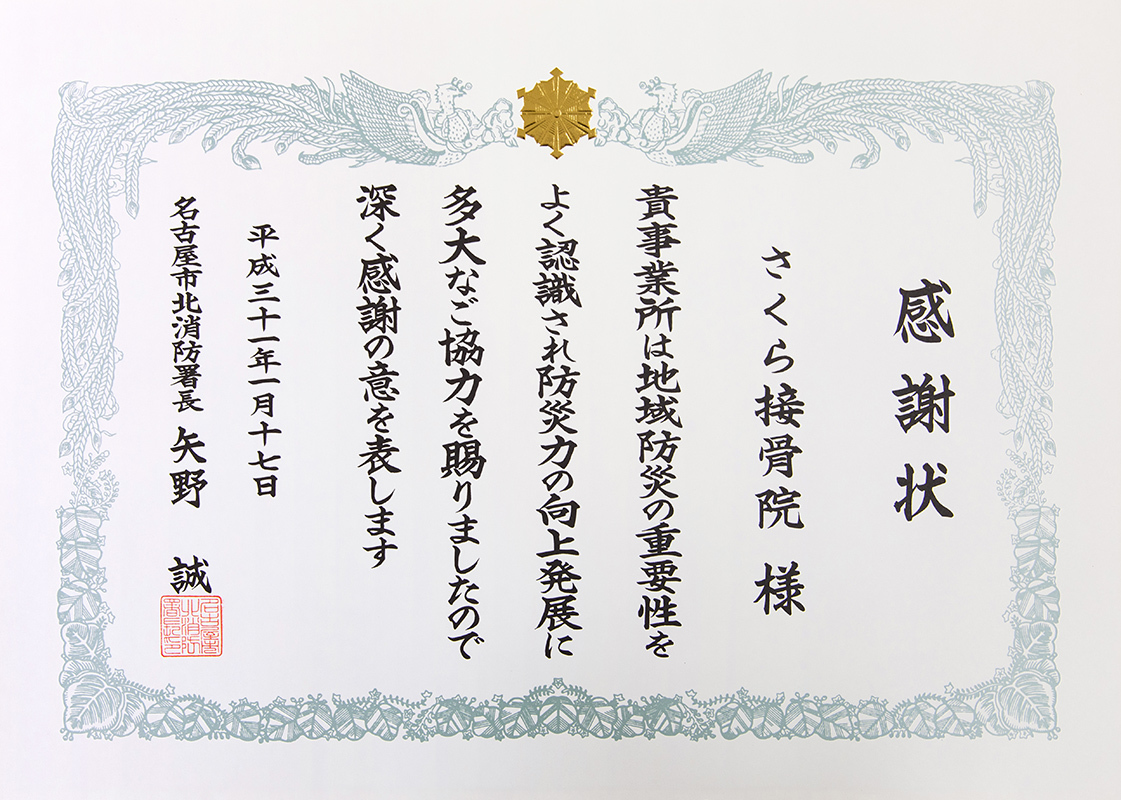 感謝状
さくら接骨院 様
貴事業所は地域防災の重要性を
よく認識され防災力の向上発展に
多大なご協力を賜りましたので
深く感謝の意を表します
平成三十一年一月十七日
名古屋市北消防署長 矢野 誠
名古屋市北消防署長之印